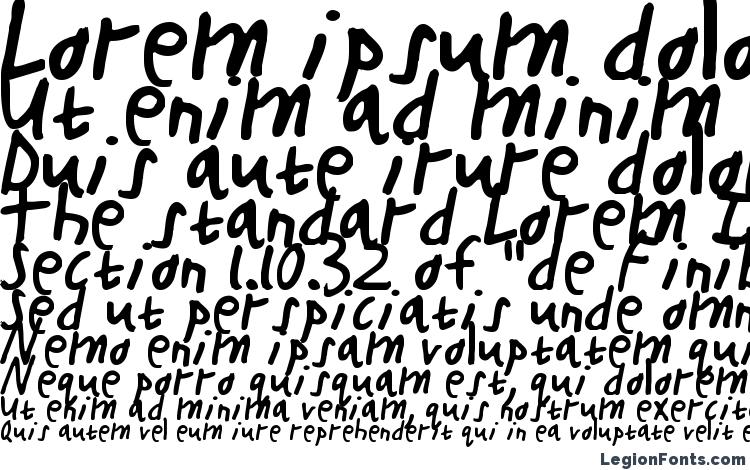 Lorem ipsum dolo
Ut enim ad minim
Duis aute irure dolor
The standard Lorem I
Section 1.10.32 of "de Finib
Sed ut perspiciatis unde omn
Nemo enim ipsam voluptatem qui
Neque porro quisquam est, qui dolorem
Ut enim ad minima veniam, quis nostrum exercit
Quis autem vel eum iure reprehenderit qui in ea voluptate velit e
LegionFonts.com